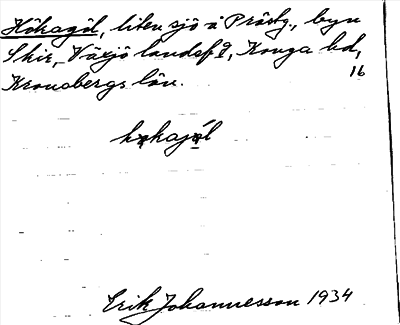 Hökagöl, liten sjö å Prästg., byn
Skir, Växjö landsf., Konga hd,
16
Kronobergs län.
Erik Johannesson 1934